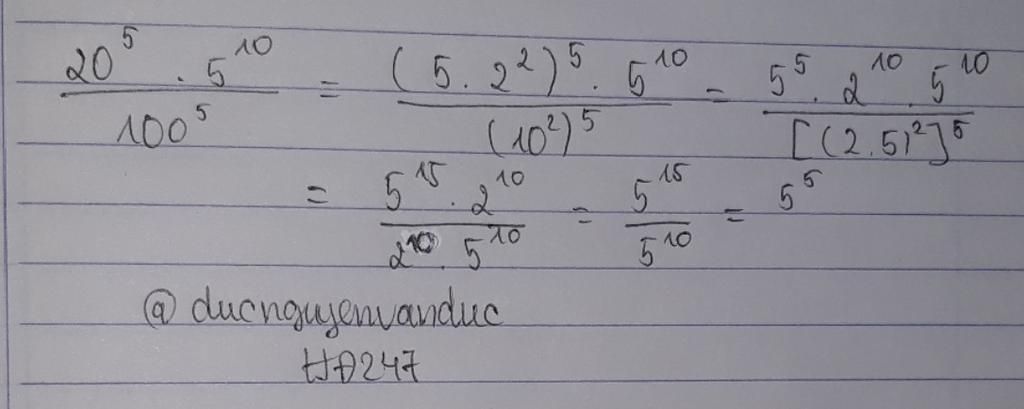 20⁵ . 5¹⁰ / 100⁵ = (5 . 2²)⁵ . 5¹⁰ / (10²)⁵ = 5⁵ . 2¹⁰ . 5¹⁰ / [(2.5)²]⁵
= 5¹⁵ . 2¹⁰ / 2¹⁰ . 5¹⁰ = 5¹⁵ / 5¹⁰ = 5⁵
@ducnguyenvanduc
HĐ247